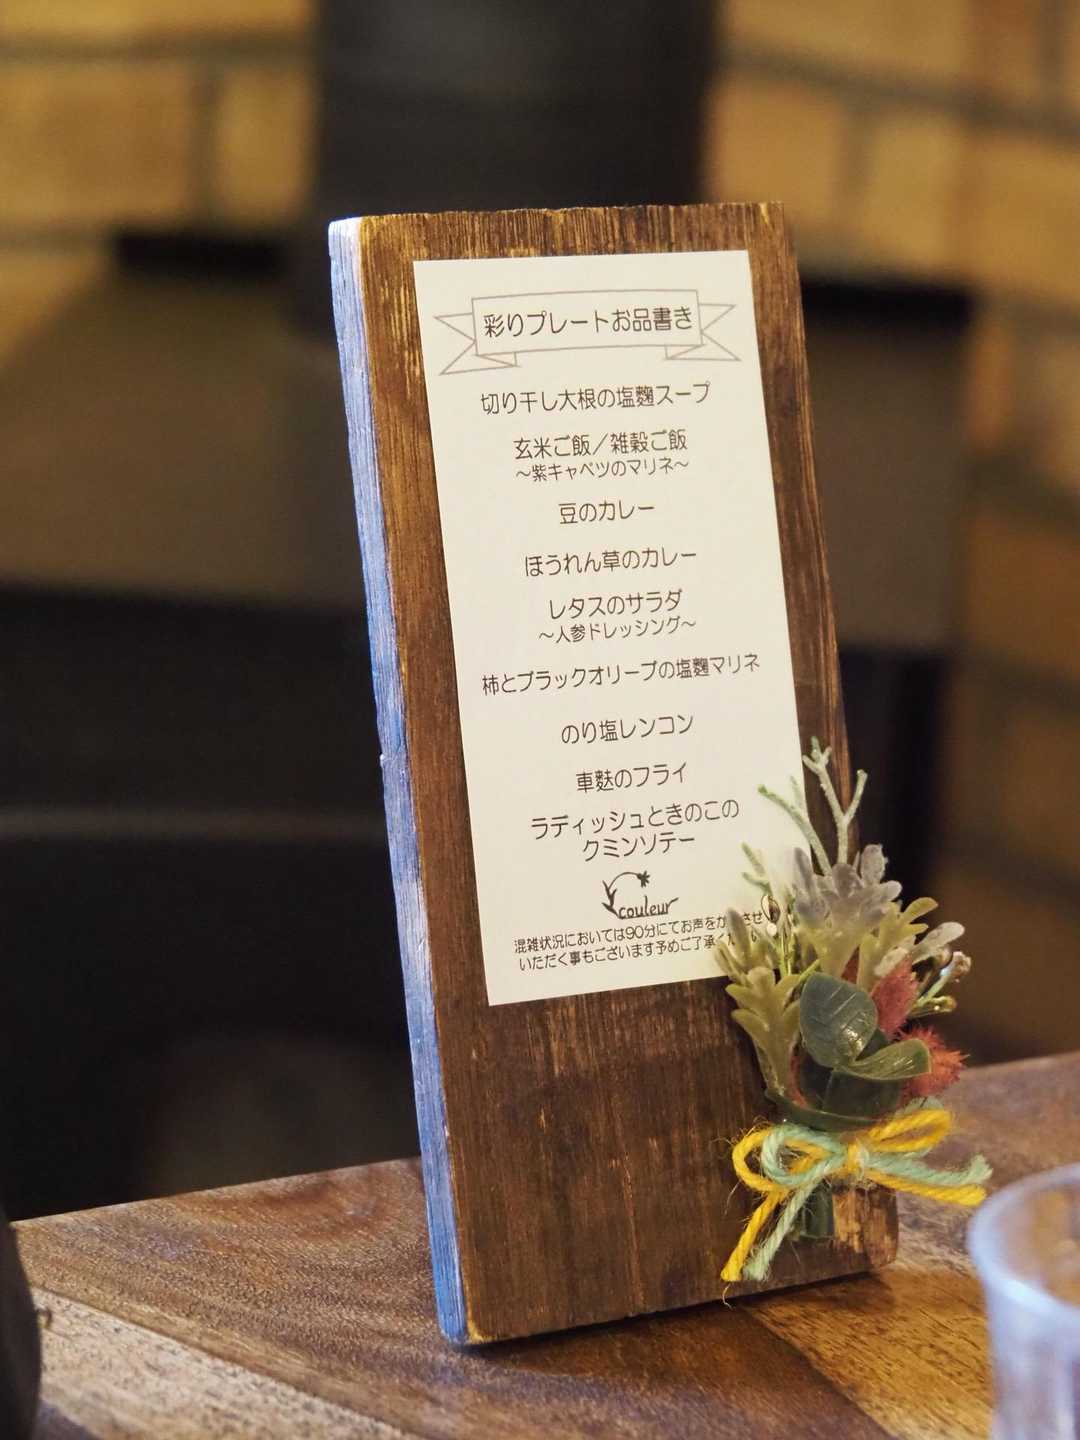 彩りプレートお品書き
切り干し大根の塩麴スープ
玄米ご飯／雑穀ご飯
～紫キャベツのマリネ～
豆のカレー
ほうれん草のカレー
レタスのサラダ
～人参ドレッシング～
柿とブラックオリーブの塩麴マリネ
のり塩レンコン
車麩のフライ
ラディッシュときのこの
クミンソテー
couleur
混雑状況においては90分にてお声をか させ
いただく事もございます予めご了承く